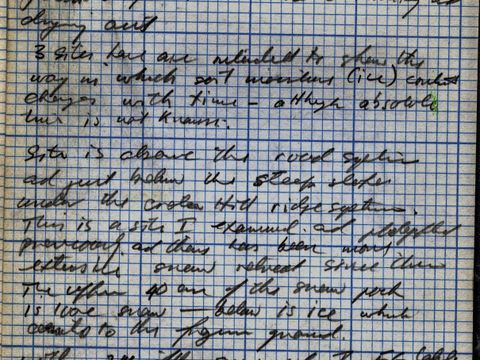 drying out
3 sites here are included to show the
way in which soil moisture (ice) content
changes with time – although absolute
time is not known.
Site is above the road system
ad just below the steep slopes
under the Hill ridge system.
This is a site I examined ad photographed
previously ad there has been more
extensive snow retreat since then
The upper 40 cm of the snow pack
is loose snow – below is ice which
to the frozen ground.